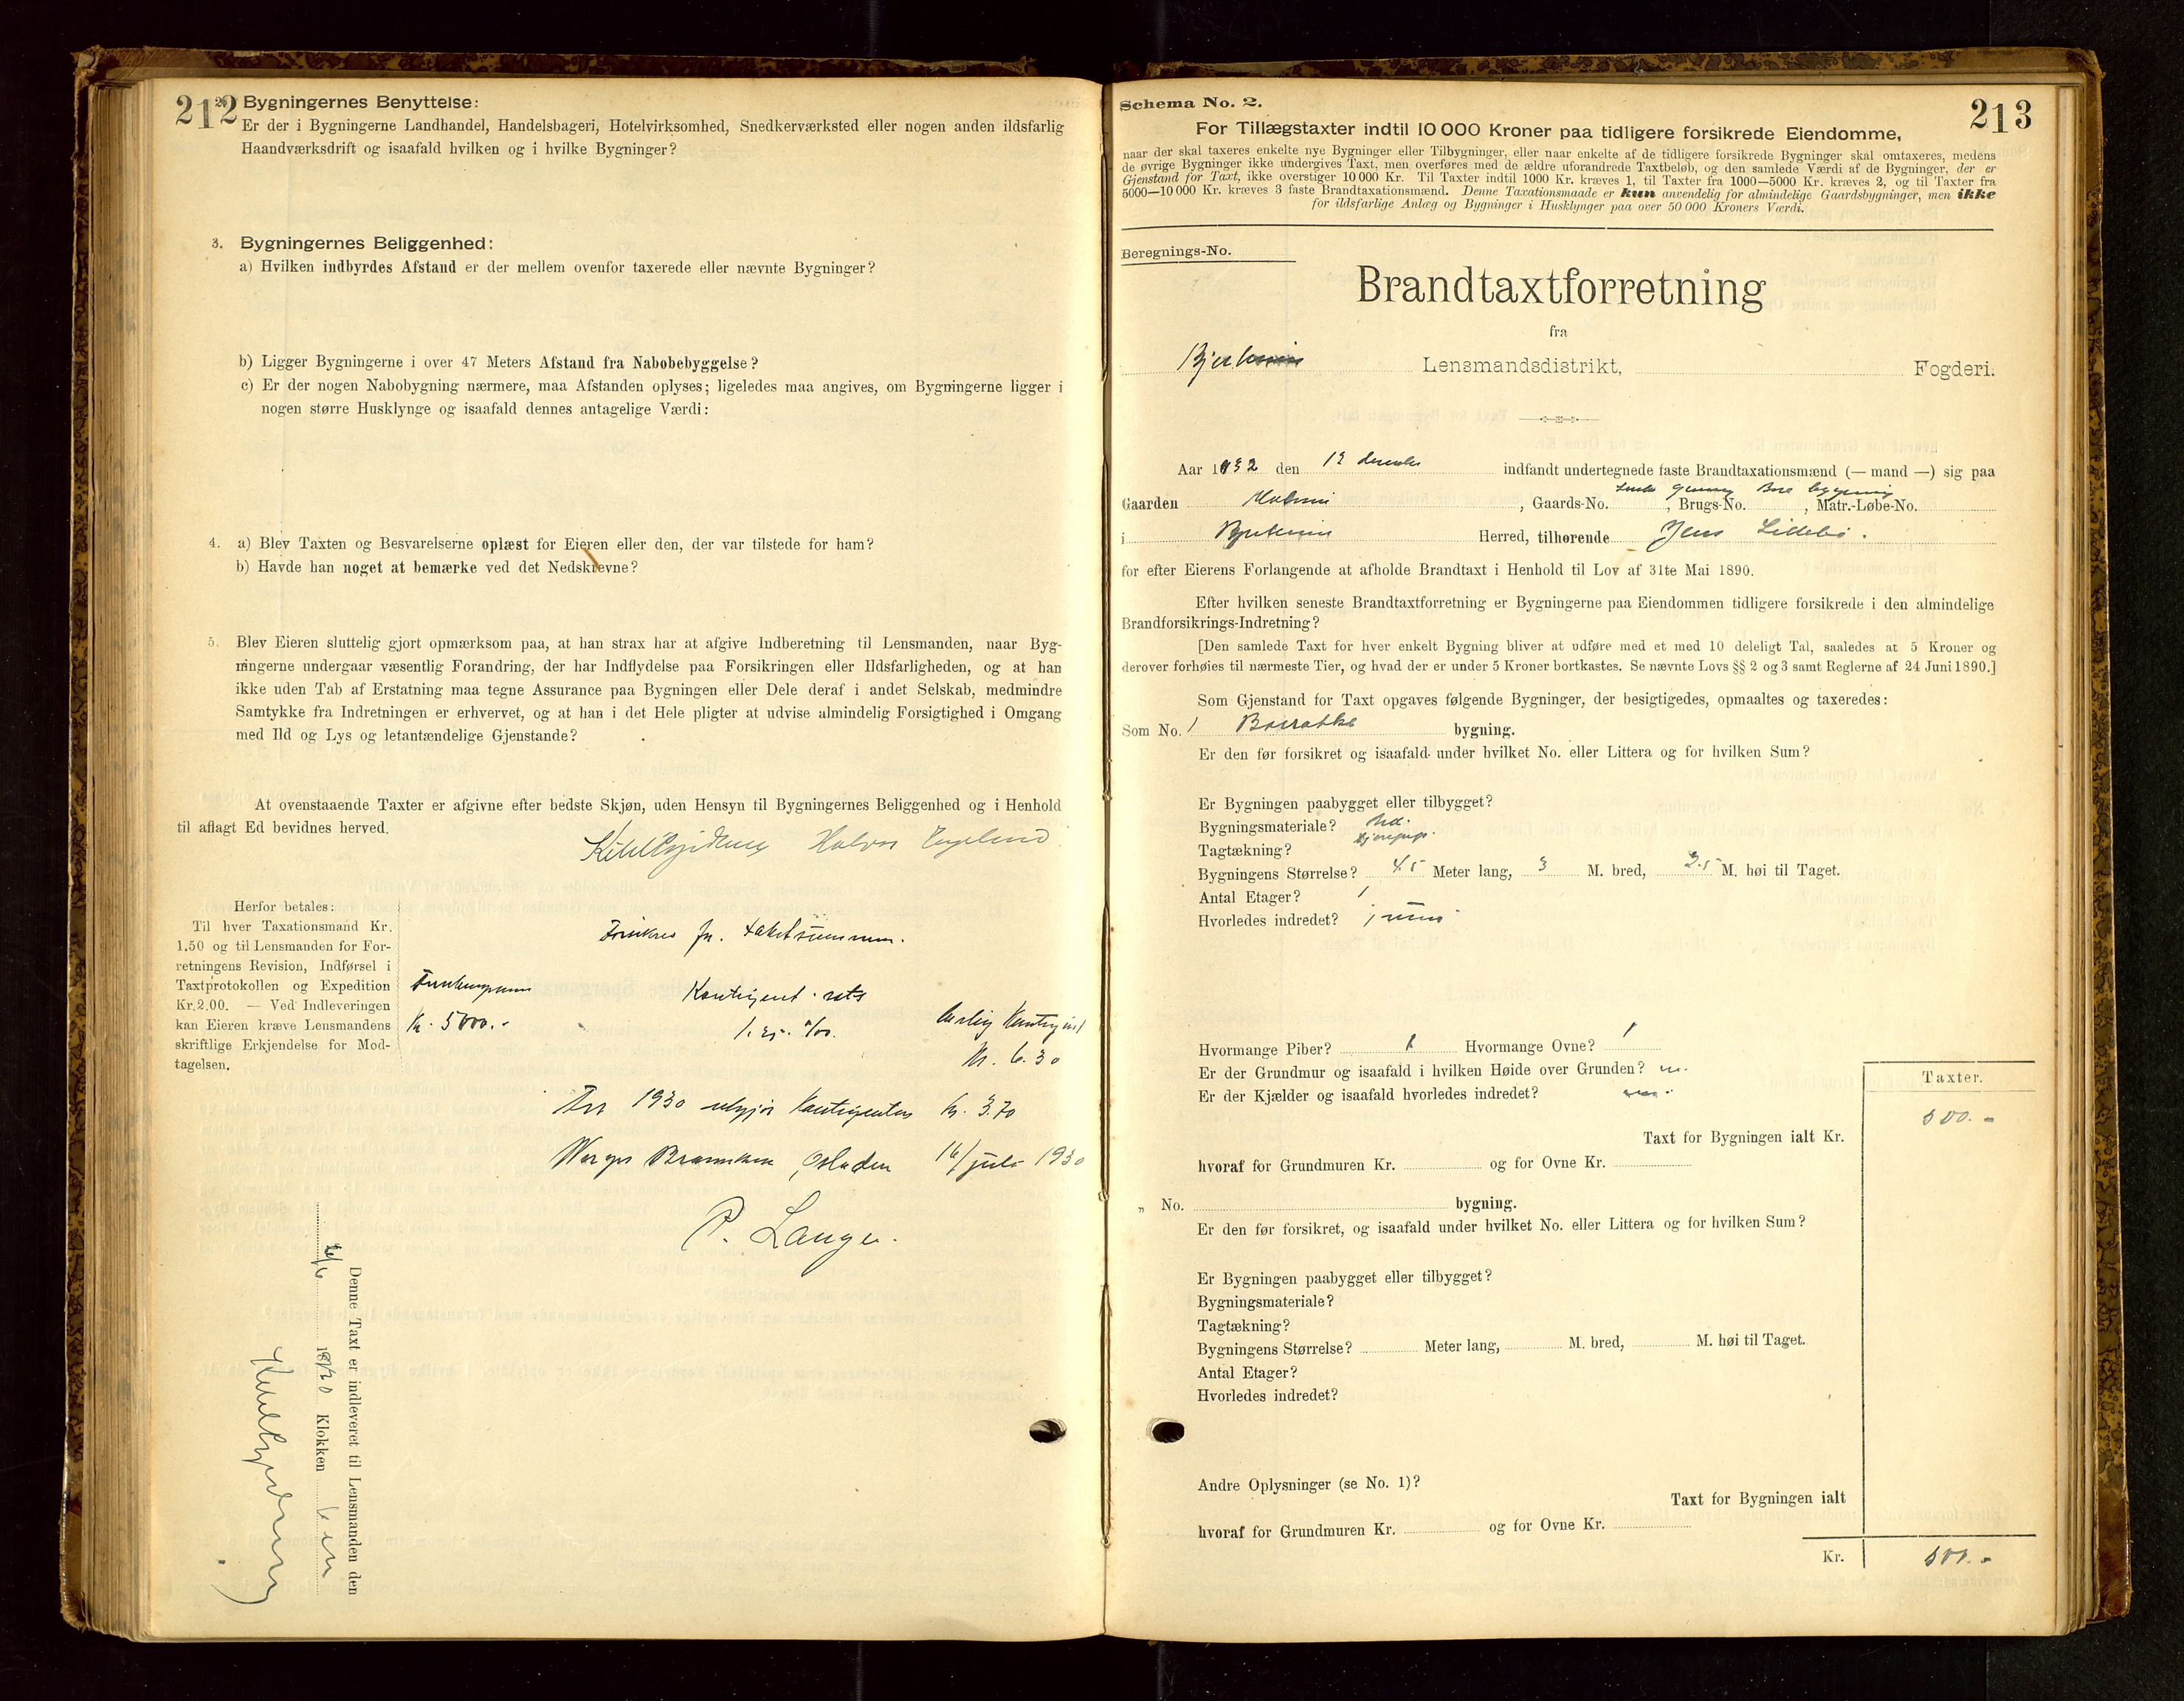 212
2. Bygningernes Benyttelse:
Er der i Bygningerne Landhandel, Handelsbageri, Hotelvirksomhed, Snedkerværksted eller nogen anden ildsfarlig
Haandværksdrift og isaafald hvilken og i hvilke Bygninger?
3. Bygningernes Beliggenhed:
a) Hvilken indbyrdes Afstand er der mellem ovenfor taxerede eller nævnte Bygninger?
b) Ligger Bygningerne i over 47 Meters Afstand fra Nabobebyggelse?
c) Er der nogen Nabobygning nærmere, maa Afstanden oplyses; ligeledes maa angives, om Bygningerne ligger i
nogen større Husklynge og isaafald dennes antagelige Værdi:
4. a) Blev Taxten og Besvarelserne oplæst for Eieren eller den, der var tilstede for ham?
b) Havde han noget at bemærke ved det Nedskrevne?
5. Blev Eieren sluttelig gjort opmærksom paa, at han strax har at afgive Indberetning til Lensmanden, naar Byg-
ningerne undergaar væsentlig Forandring, der har Indflydelse paa Forsikringen eller Ildsfarligheden, og at han
ikke uden Tab af Erstatning maa tegne Assurance paa Bygningen eller Dele deraf i andet Selskab, medmindre
Samtykke fra Indretningen er erhvervet, og at han i det Hele pligter at udvise almindelig Forsigtighed i Omgang
med Ild og Lys og letantændelige Gjenstande?
At ovenstaaende Taxter er afgivne efter bedste Skjøn, uden Hensyn til Bygningernes Beliggenhed og i Henhold
til aflagt Ed bevidnes herved.
Halvor
Herfor betales:
Til hver Taxationsmand Kr.
1.50 og til Lensmanden for For-
retningens Revision, Indførsel i
Taxtprotokollen og Expedition
Kr. 2.00. — Ved Indleveringen
kan Eieren kræve Lensmandens
skriftlige Erkjendelse for Mod-
tagelsen.
Forsikres for takstsummen.
Kontigent sats
Kr. 5000.-
Kr. 6.30
For 1930 utgjør Kontigenten Kr. 3.70
Norges Brannkasse, 16/juli 1930
P. Lange.
Denne Taxt er indleveret til Lensmanden den
1930 Klokken
Schema No. 2.
213
For Tillægstaxter indtil 10 000 Kroner paa tidligere forsikrede Eiendomme,
naar der skal taxeres enkelte nye Bygninger eller Tilbygninger, eller naar enkelte af de tidligere forsikrede Bygninger skal omtaxeres, medens
de øvrige Bygninger ikke undergives Taxt, men overføres med de ældre uforandrede Taxtbeløb, og den samlede Værdi af de Bygninger, der er
Gjenstand for Taxt, ikke overstiger 10 000 Kr. Til Taxter indtil 1000 Kr. kræves 1, til Taxter fra 1000—5000 Kr. kræves 2, og til Taxter fra
5000—10 000 Kr. kræves 3 faste Brandtaxationsmænd. Denne Taxationsmaade er kun anvendelig for almindelige Gaardsbygninger, men ikke
for ildsfarlige Anlæg og Bygninger i Husklynger paa over 50 000 Kroners Værdi.
Beregnings-No.
Brandtaxtforretning
fra
Lensmandsdistrikt, Fogderi.
Aar 1932 den 12 indfandt undertegnede faste Brandtaxationsmænd (— mand —) sig paa
Gaarden , Gaards-No. , Brugs-No. , Matr.-Løbe-No.
i Herred, tilhørende Jens Lillebø.
for efter Eierens Forlangende at afholde Brandtaxt i Henhold til Lov af 31te Mai 1890.
Efter hvilken seneste Brandtaxtforretning er Bygningerne paa Eiendommen tidligere forsikrede i den almindelige
Brandforsikrings-Indretning?
[Den samlede Taxt for hver enkelt Bygning bliver at udføre med et med 10 deleligt Tal, saaledes at 5 Kroner og
derover forhøies til nærmeste Tier, og hvad der er under 5 Kroner bortkastes. Se nævnte Lovs §§ 2 og 3 samt Reglerne af 24 Juni 1890.]
Som Gjenstand for Taxt opgaves følgende Bygninger, der besigtigedes, opmaaltes og taxeredes:
Som No. 1 bygning.
Er den før forsikret og isaafald under hvilket No. eller Littera og for hvilken Sum?
Er Bygningen paabygget eller tilbygget?
Bygningsmateriale?
Tagtækning?
Bygningens Størrelse? 4.5 Meter lang, 3 M. bred, 2.5 M. høi til Taget.
Antal Etager? 1
Hvorledes indredet?
Hvormange Piber? 1 Hvormange Ovne? 1
Er der Grundmur og isaafald i hvilken Høide over Grunden?
Er der Kjælder og isaafald hvorledes indredet?
Taxter.
500.-
Taxt for Bygningen ialt Kr.
hvoraf for Grundmuren Kr. og for Ovne Kr.
„ No. bygning.
Er den før forsikret, og isaafald under hvilket No. eller Littera og for hvilken Sum?
Er Bygningen paabygget eller tilbygget?
Bygningsmateriale?
Tagtækning?
Bygningens Størrelse? Meter lang, M. bred, M. høi til Taget.
Antal Etager?
Hvorledes indredet?
Andre Oplysninger (se No. 1)?
Taxt for Bygningen ialt
hvoraf for Grundmuren Kr. og for Ovne Kr.
Kr. 500.-